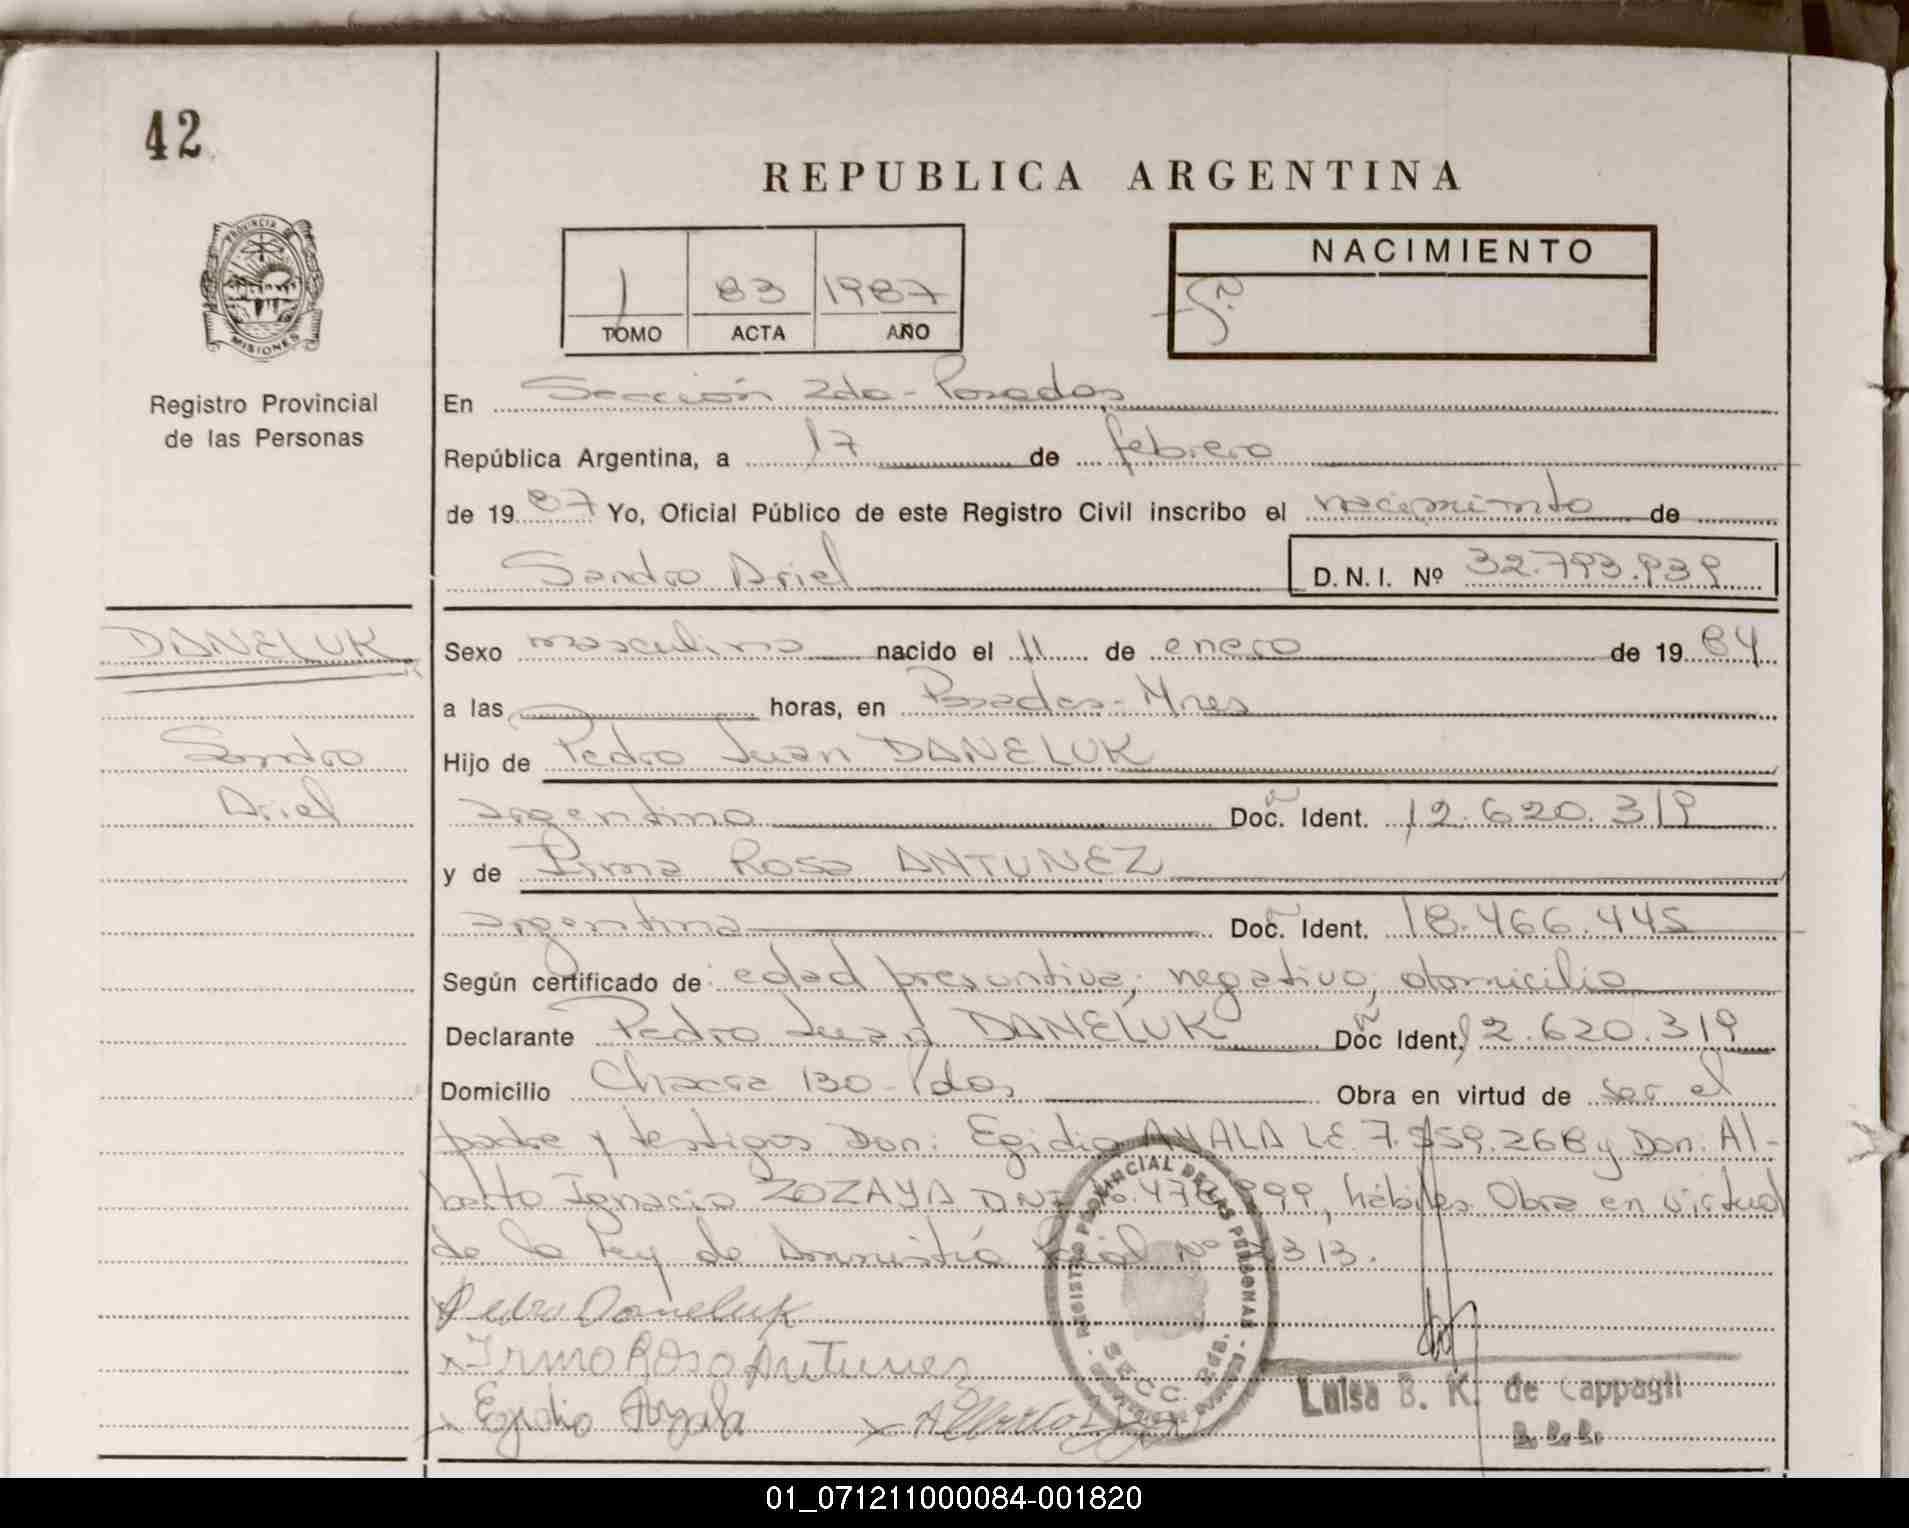 42
REPUBLICA ARGENTINA
PROVINCIA DE MISIONES
1 83 1987
TOMO ACTA AÑO
NACIMIENTO
Registro Provincial
de las Personas
En Sección 2da - Posadas
República Argentina, a 17 de febrero
de 1987 Yo, Oficial Público de este Registro Civil inscribo el nacimiento de
Sandro Ariel D.N.I. Nº 32.793.939
DANELUK
Sandro
Ariel
Sexo masculino nacido el 11 de enero de 1984
a las horas, en Posadas - Mnes
Hijo de Pedro Juan DANELUK
argentino Doc. Ident. 12.620.319
y de Irma Rosa ANTUNEZ
argentina Doc. Ident. 18.466.445
Según certificado de: edad presuntiva; negativo; domicilio
Declarante Pedro Juan DANELUK Doc Ident. 12.620.319
Domicilio Chacra 130 - Pdas, Obra en virtud de ser el
padre y testigos Don: Egidio AYALA LE. 7. 59.268 y Don: Al-
berto Ignacio ZOZAYA DNI 999, hábiles. Obra en virtud
de la Ley de Amnistía Nº 313.
Pedro Daneluk
Irma Rosa Antunez
Egidio Ayala Alberto
REGISTRO PROVINCIAL DE LAS PERSONAS
SECC. 2da.
Luisa B. K. de Cappagli
01_071211000084-001820